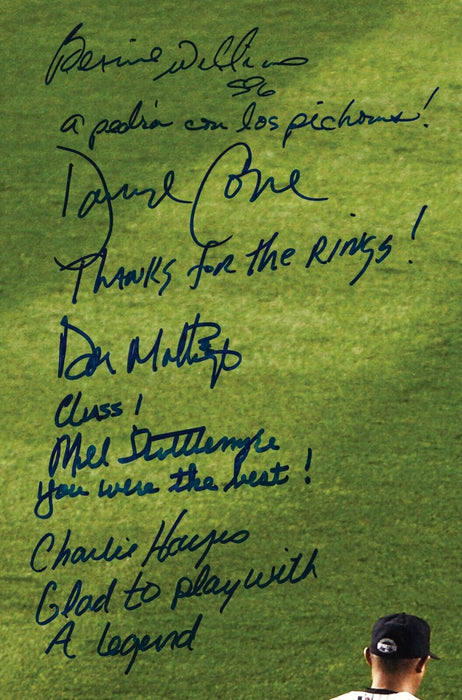 Bernie Williams
a pedrá con los pichones!
David Cone
Thanks for the Rings!
Don Mattingly
Class!
Mel Stottlemyre
you were the best!
Charlie Hayes
Glad to play with
A Legend